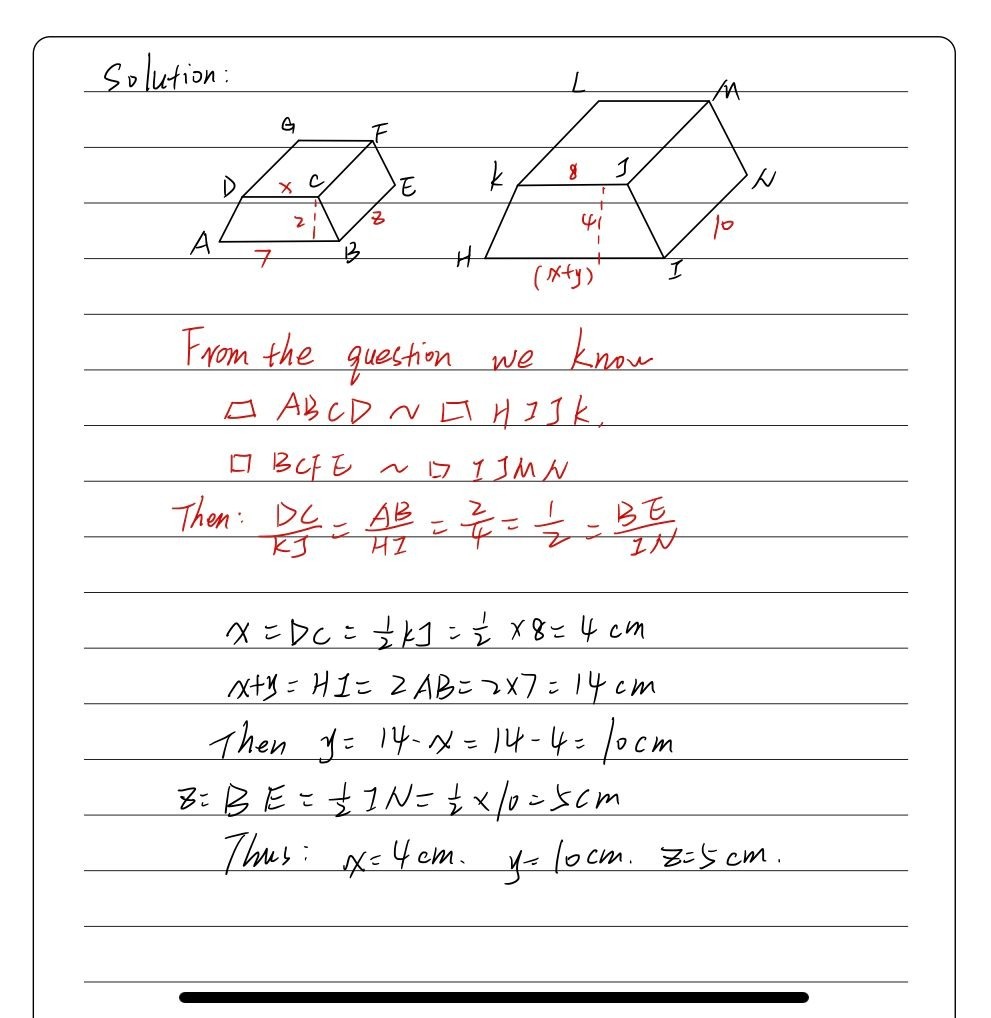 Solution:
L M
G F
D x C E
K 8 J N
2 z
4 10
A 7 B
H (x+y) I
From the question we know
▱ ABCD ~ ▱ HIJK,
▱ BCFE ~ ▱ IJMN
Then: DC/KJ = AB/HI = 2/4 = 1/2 = BE/IN
x = DC = 1/2 KJ = 1/2 × 8 = 4 cm
x+y = HI = 2AB = 2×7 = 14 cm
Then y = 14 - x = 14 - 4 = 10 cm
z = BE = 1/2 IN = 1/2 × 10 = 5 cm
Thus: x = 4 cm. y = 10 cm. z = 5 cm.